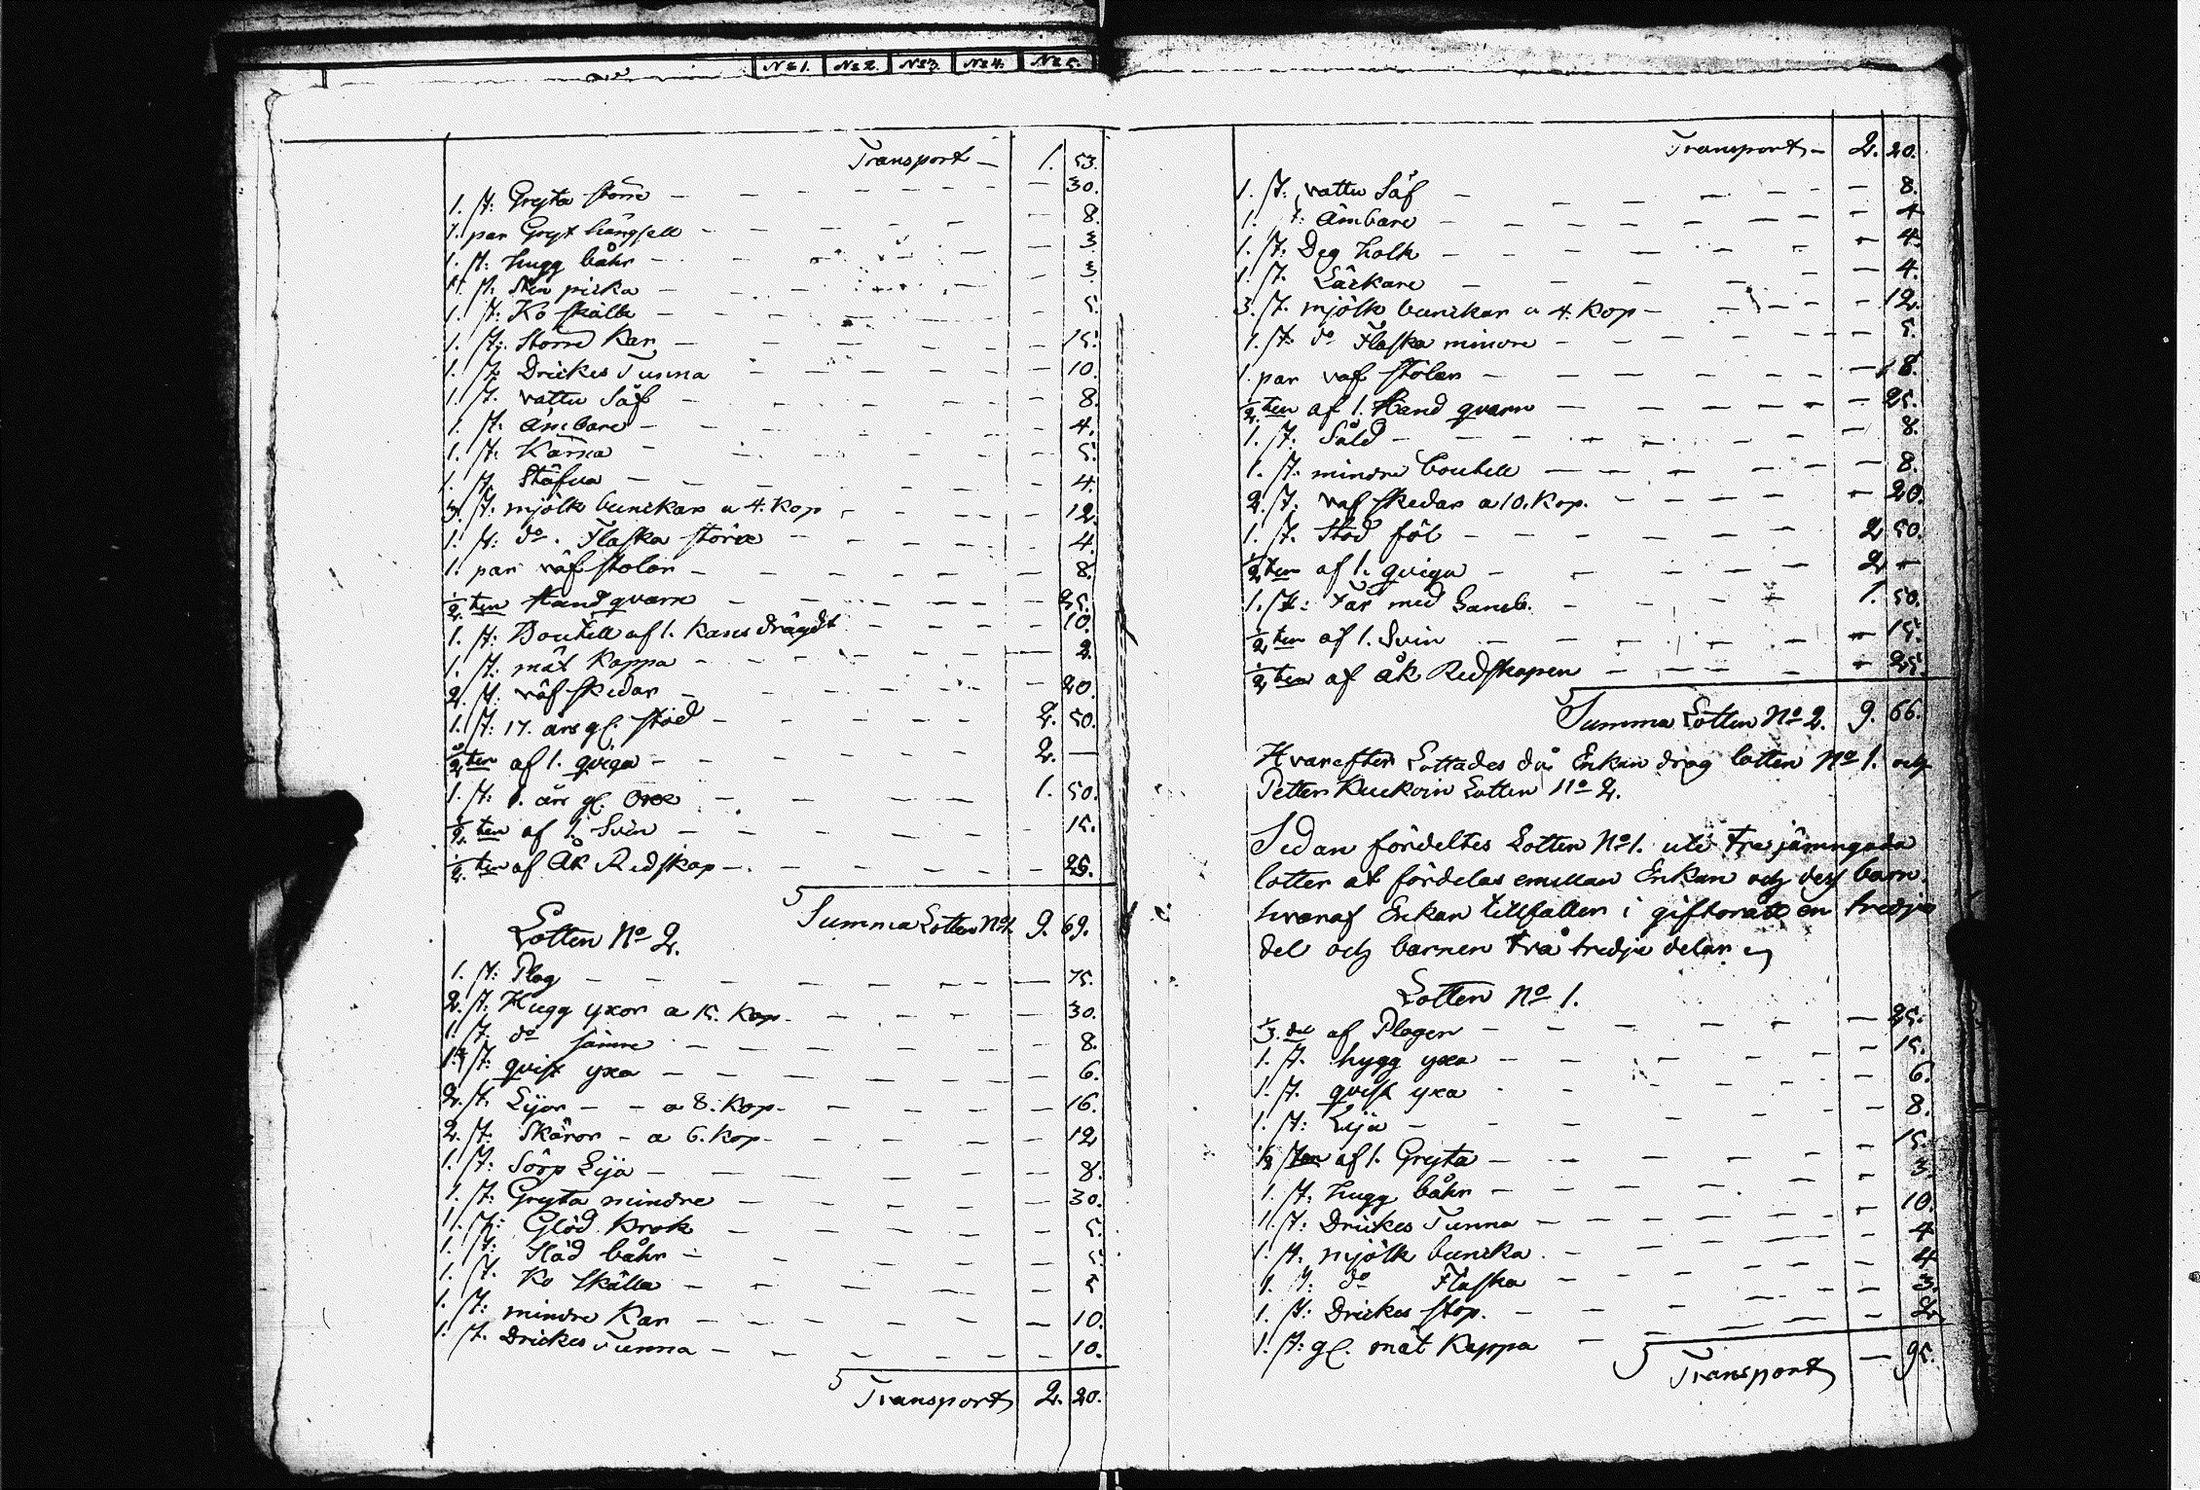 No 1. No 2. No 3. No 4. No 5.
Transport — 1. 53.
1. st: Gryta större — 30.
1. par Gryt hängsell — 8.
1. st: hugg båhr — 3.
1. st: Sten picka — 3.
1. st: Ko skälla — 5.
1. st: Större Kar — 15.
1. st: Drickes Tunna — 10.
1. st. vattu Såf — 8.
1. st: Ämbare — 4.
1. st: Kärna — 5.
1. st. Stäfva — 4.
3. st. mjölk bunckar a 4. kop — 12.
1. st: do. Flaska större — 4.
1. par väf stolar — 8.
1/2 ten Handqvarn — 25.
1. st: Boutell af 1. Kans drägdt — 10.
1. st: mät Kappa — 2.
2. st: väf skedar — 20.
1. st: 17. års gl. stod — 2. 50.
1/2 ten af 1. qviga — 2. —
1. st: 1. års gl. Oxe — 1. 50.
1/2 ten af 1. Svin — 15.
1/2 ten af Åk Redskap — 25.
Summa Lotten No 1. 9. 69.
Lotten No 2.
1. st: Plog — 75.
2. st. Hugg yxor a 15. Kop — 30.
1. st. do sämre — 8.
1. st: qvist yxa — 6.
2. st. Lijor — a 8. Kop — 16.
2. st. Skäror — a 6. Kop — 12
1. st: Sörp Lija — 8.
1. st: Gryta mindre — 30.
1. st: Glöd Krok — 5.
1. st: Släd båhr — 5.
1. st. Ko skälla — 5
1. st: mindre Kar — 10.
1. st. Drickes Tunna — 10.
Transport 2. 20.
Transport — 2. 20.
1. st: vattu Såf — 8.
1. st: Ämbare — 4
1. st: Deg holk — 4.
1. st. Läckare — 4.
3. st. mjölk bunckar a 4. kop — 12.
1. st. do Flaska mindre — 5.
1. par väf stolar — 8.
1/2 ten af 1. Hand qvarn — 25.
1. st. Såld — 8.
1. st. mindre boutell — 8.
2. st. väf skedar a 10. Kop. — 20.
1. st. Stod föl — 2 50.
1/2 ten af 1. qviga — 2 —
1. st: Får med Lamb. — 1. 50.
1/2 ten af 1. Svin — 15.
1/2 ten af åk Redskapen — 25.
Summa Lotten No 2. 9. 66.
Hvarefter Lottades då Enkan drog lotten No 1. och
Petter Kuckoin Lotten No 2.
Sedan fördeltes Lotten No 1. uti tre jämngoda
lotter at fördelas emellan Enkan och dess barn,
hvaraf Enkan tillfaller i giftorätt en tredje
del och barnen två tredje delar
Lotten No 1.
1/3 del af Plogen — 25.
1. st. hygg yxa — 15.
1. st. qvist yxa — 6.
1. st: Lija — 8.
1/2 ten af 1. Gryta — 15.
1. st: hugg båhr — 3.
1. st: Drickes Tunna — 10.
1. st. mjölk buncka — 4
1. st: do Flaska — 4
1. st: Drickes stop. — 3.
1. st: gl. mät Kappa — 2
Transport — 95.